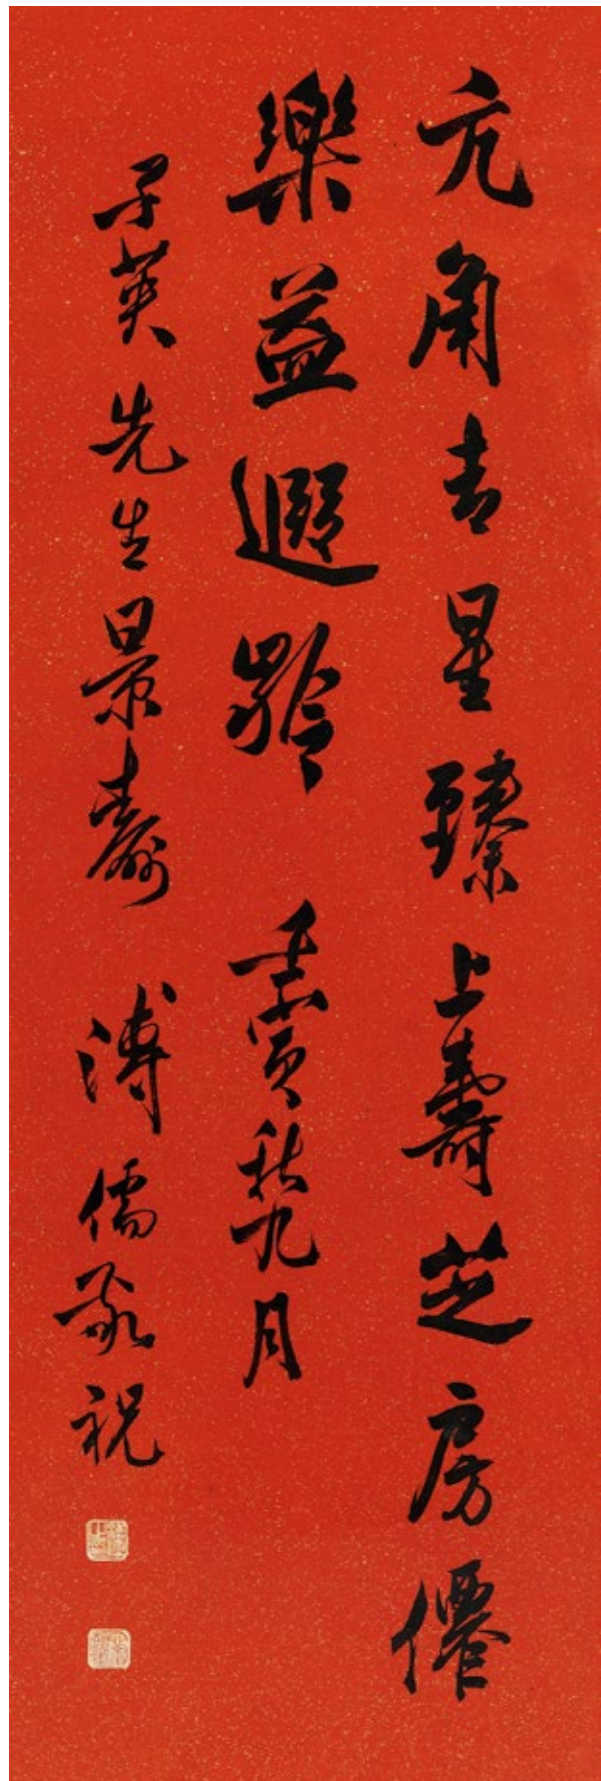 亢角吉星臻上壽芝房僊
樂益遐齡 壬寅秋九月
子英先生景壽 溥儒敬祝